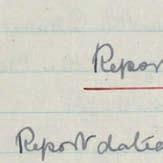 Repor
Report datia